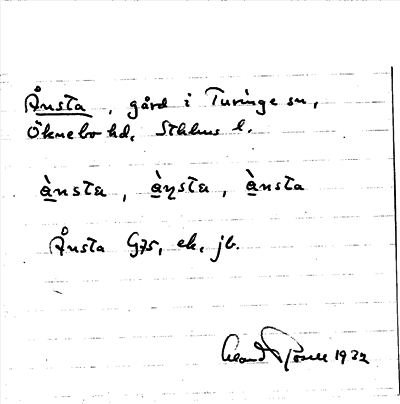 Ånsta, gård i Turinge sn,
Öknebo hd, Sthlms l.
ànsta, ànsta, ànsta
Ånsta G75, ek, jb.
1932